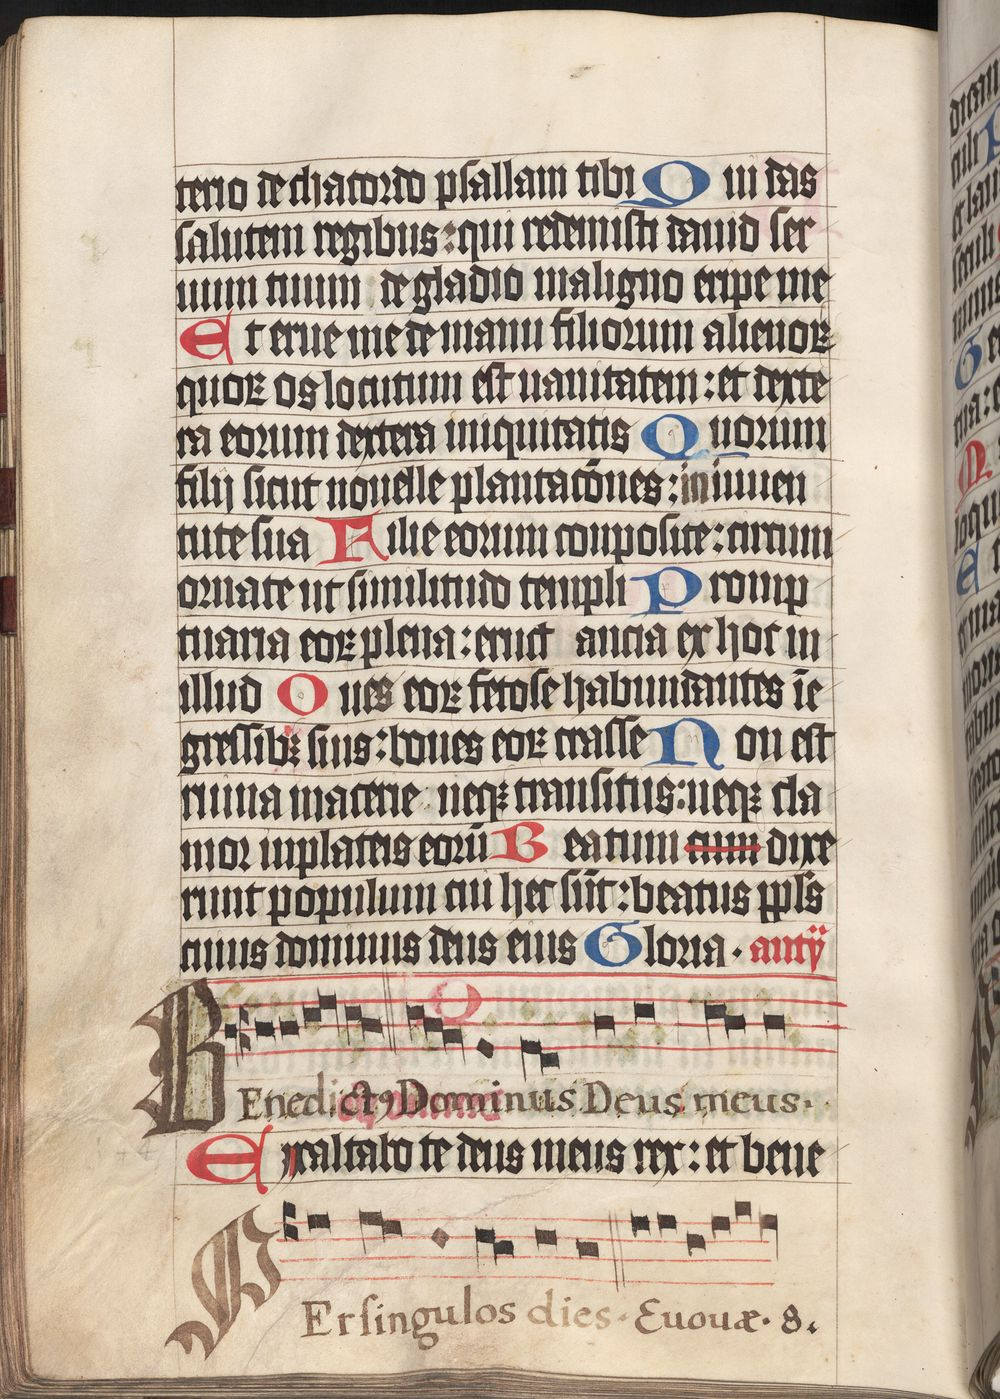 terio dechacordo psallam tibi Qui das
salutem regibus: qui redemisti dauid ser
uum tuum de gladio maligno eripe me
Et erue me de manu filiorum alienoꝝ
quoꝝ os locutum est uanitatem: et dexte
ra eorum dextera iniquitatis Quorum
filij sicut nouelle plantacōnes: in iuuen
tute sua Filie eorum conposite: circum
ornate ut similitudo templi Promp
tuaria eoꝝ plena: eruct ancia ex hoc in
illud Oues eoꝝ fetose habundantes ī e
gressibꝫ suis: boues eoꝝ crasse Non est
ruina macerie neqꝫ transitus: neqꝫ cla
mor inplateis eorū Beatum cum dixe
runt populum cui hec sūt: beatus ppls
cuius dominus deus eius Gloria. antỹ
BEnedictꝰ Dominus Deus meus.
Exaltabo te deus meus rex: et bene
PEr singulos dies. Euouæ. 8.